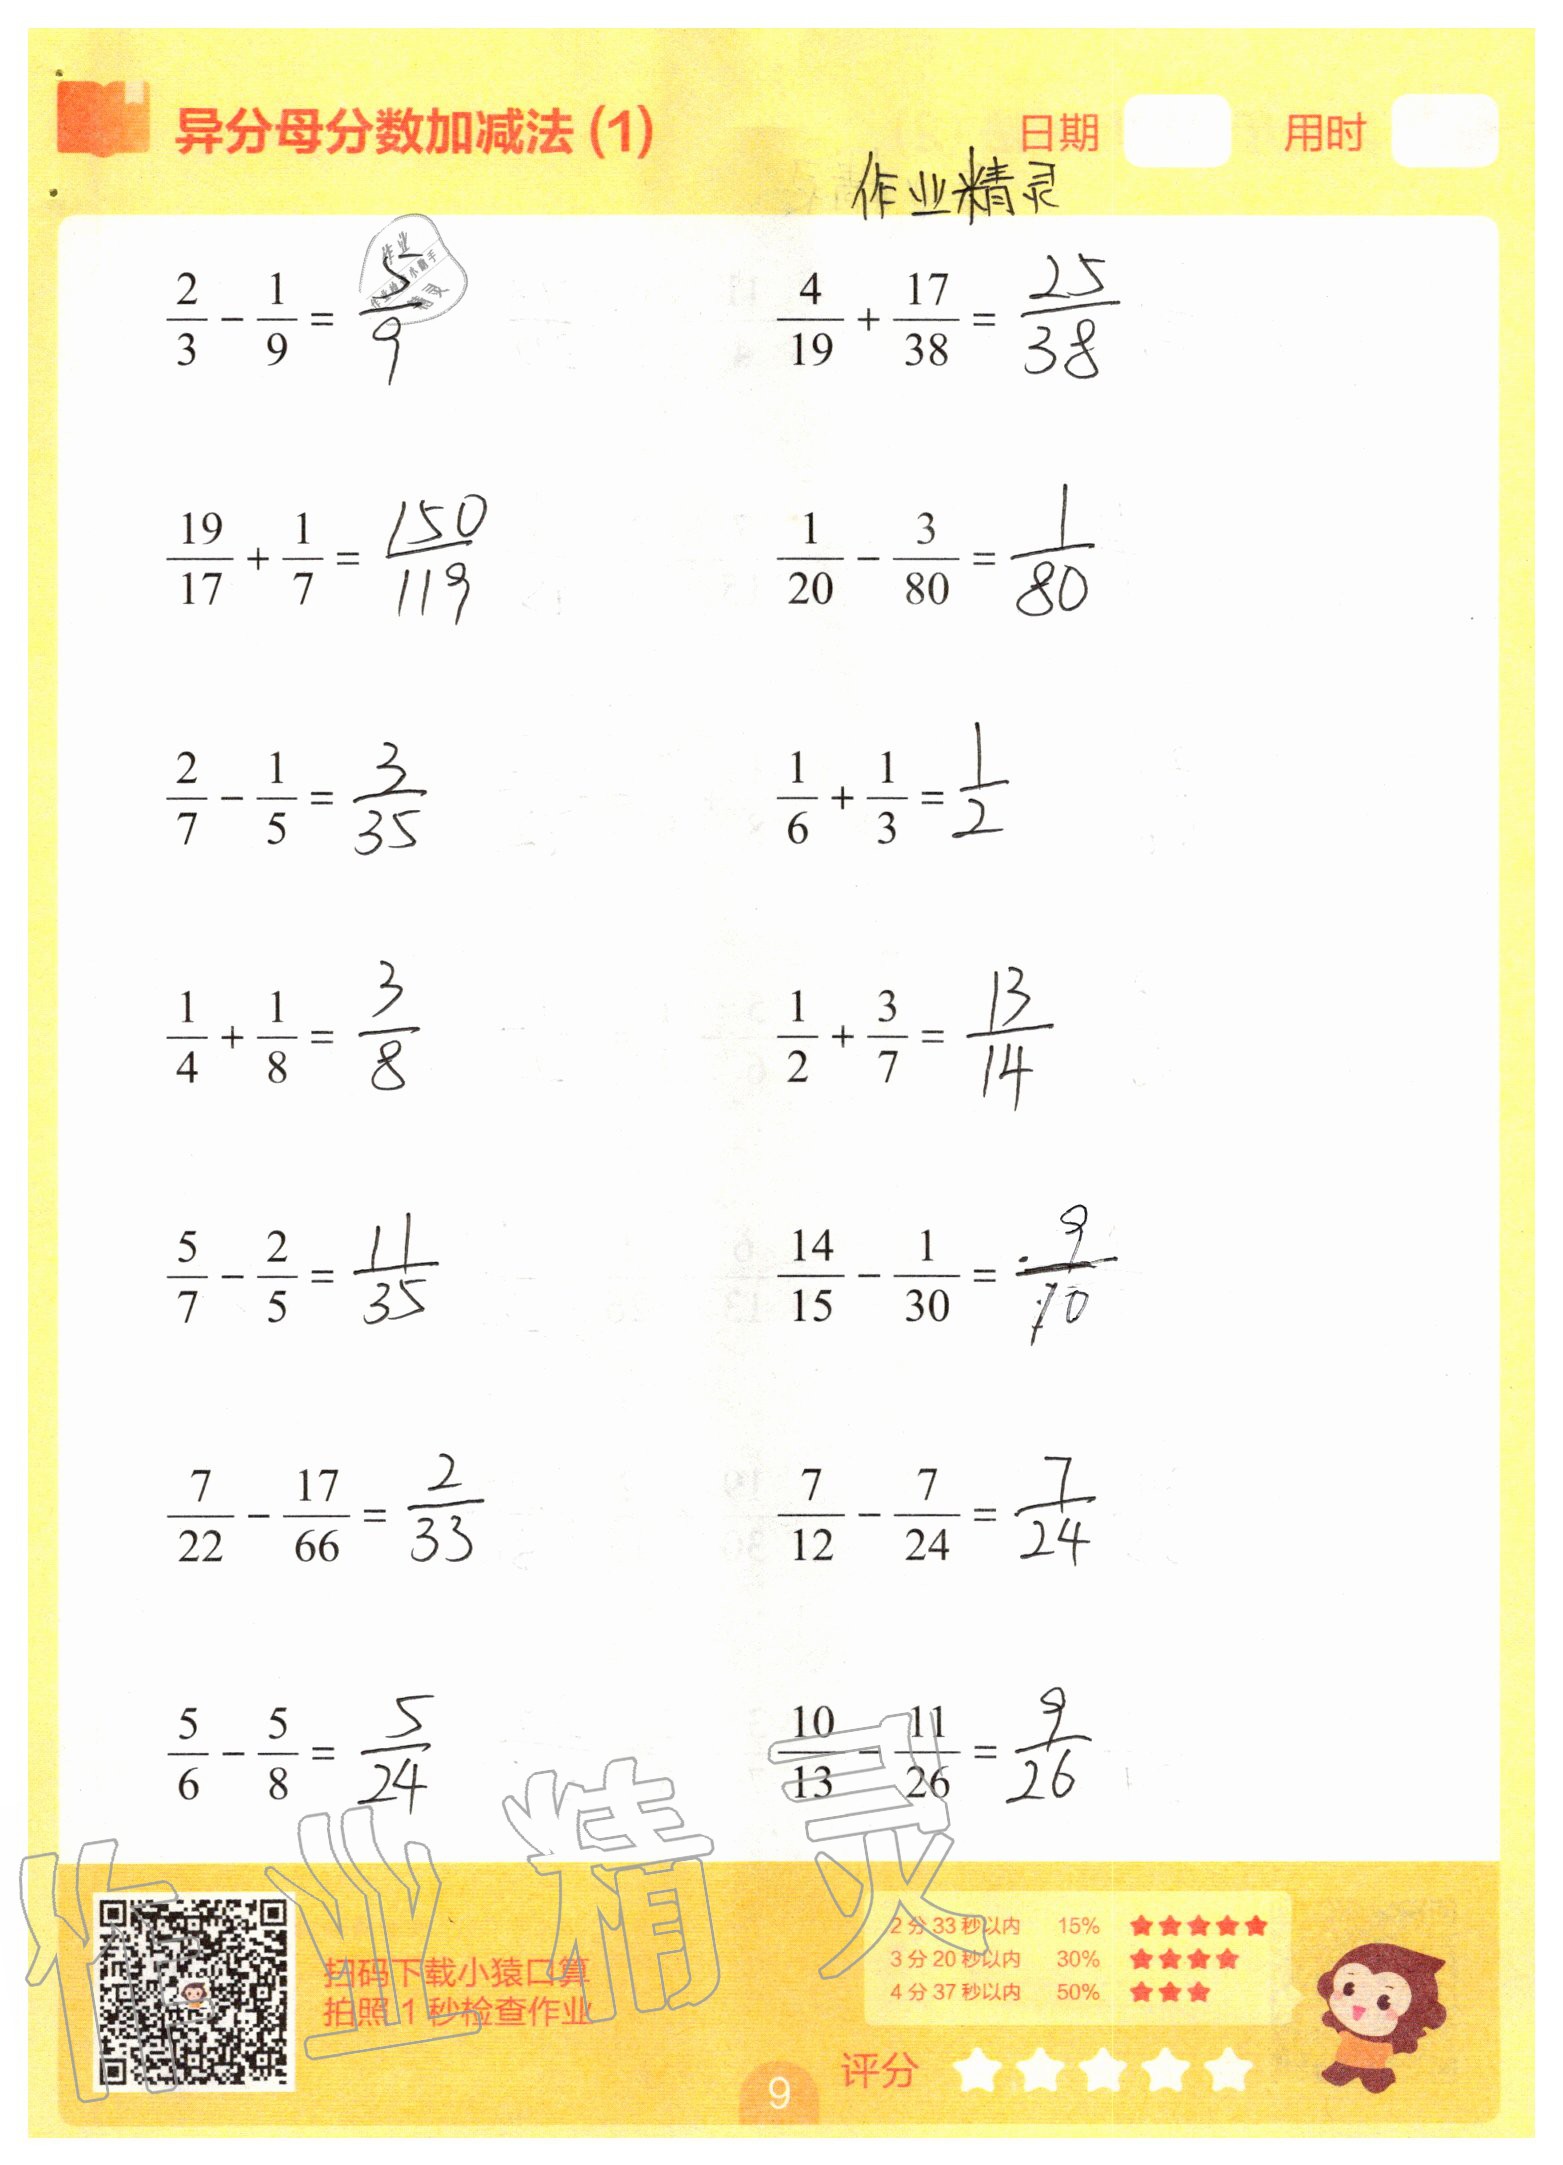 异分母分数加减法 (1) 日期 用时
作业精灵
2/3 − 1/9 = 5/9
4/19 + 17/38 = 25/38
19/17 + 1/7 = 150/119
1/20 − 3/80 = 1/80
2/7 − 1/5 = 3/35
1/6 + 1/3 = 1/2
1/4 + 1/8 = 3/8
1/2 + 3/7 = 13/14
5/7 − 2/5 = 11/35
14/15 − 1/30 = 9/10
7/22 − 17/66 = 2/33
7/12 − 7/24 = 7/24
5/6 − 5/8 = 5/24
10/13 − 11/26 = 9/26
作业精灵
扫码下载小猿口算
拍照 1 秒检查作业
2 分 33 秒以内 15%
3 分 20 秒以内 30%
4 分 37 秒以内 50%
评分
9